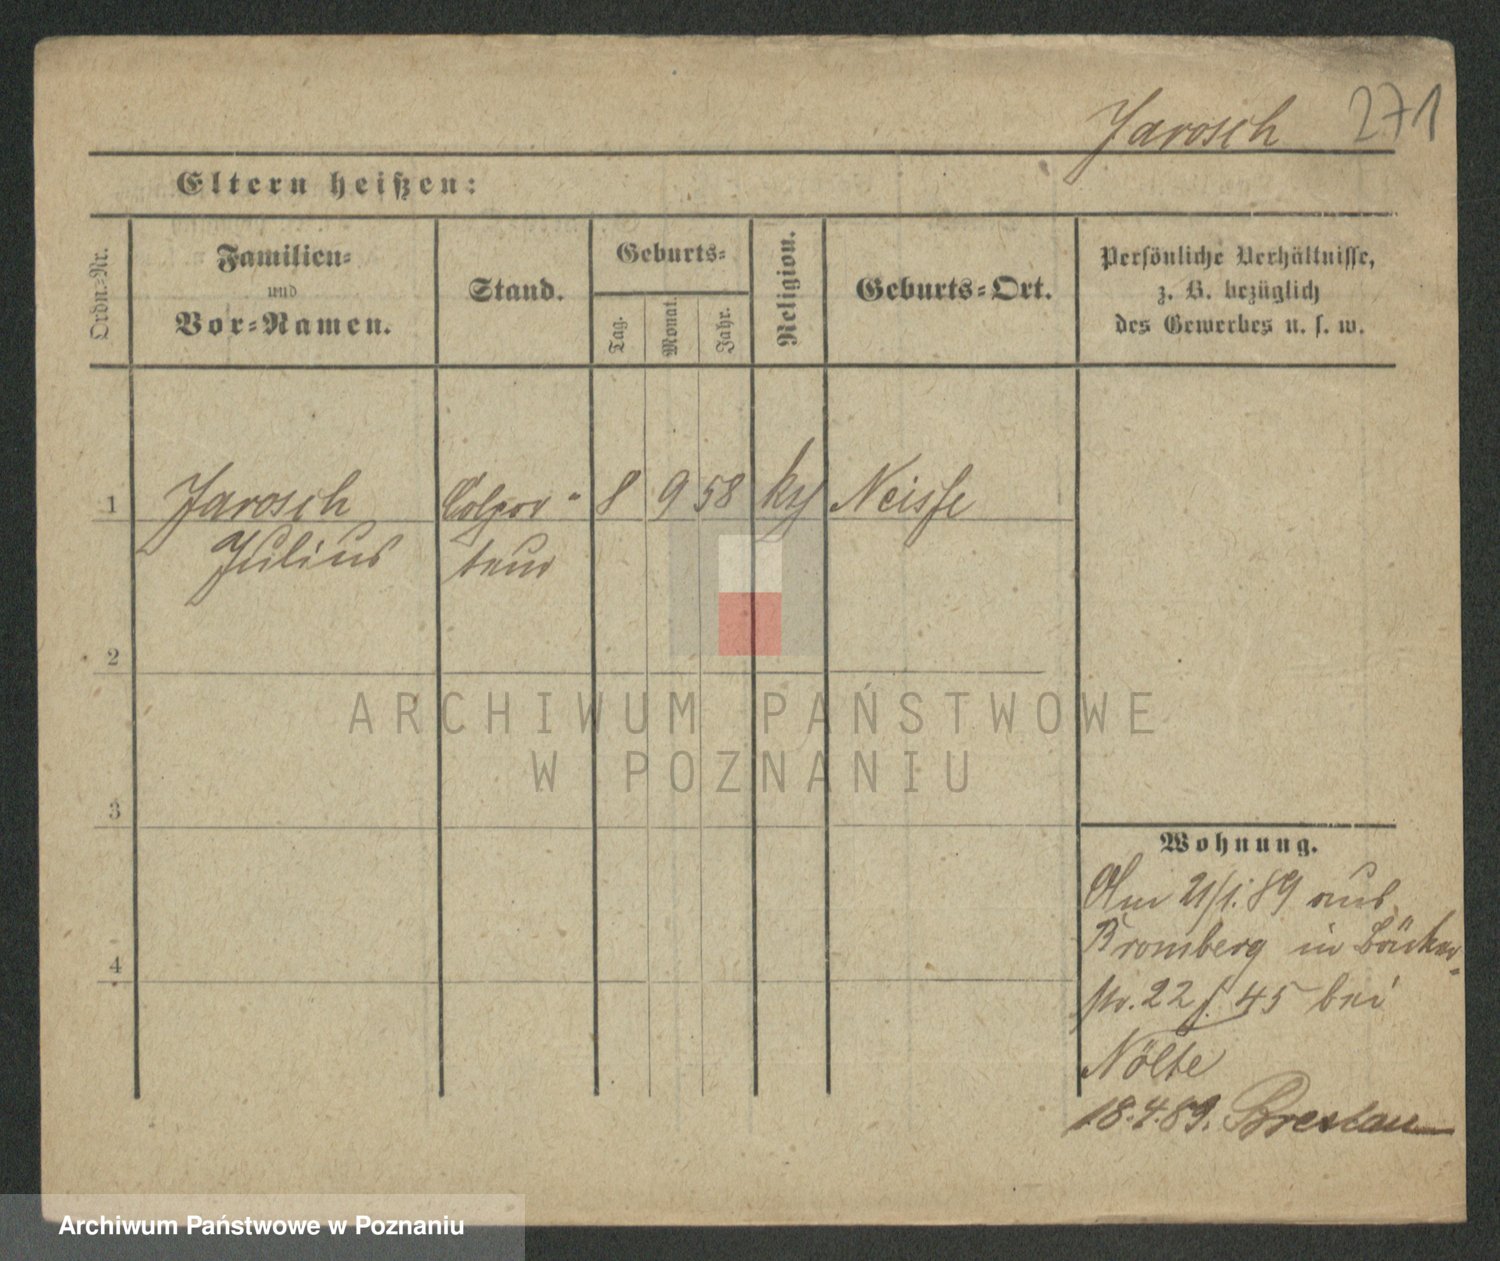 Jarosch 271
Eltern heißen:
Ordn.-Nr.
Familien-
und
Vor-Namen.
Stand.
Geburts-
Tag.
Monat.
Jahr.
Religion.
Geburts-Ort.
Persönliche Verhältnisse,
z. B. bezüglich
des Gewerbes u. s. w.
1 Jarosch Colpor- 8 9 58 Neisse
Julius teur
2
ARCHIWUM PAŃSTWOWE
W POZNANIU
3
4
Wohnung.
Am 21/1.89 aus
Bromberg in Bäcker-
str. 22 45 bei
Nölte
18.4.89. Breslau
Archiwum Państwowe w Poznaniu